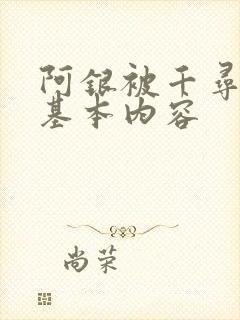 阿银被千尋
基本内容
尚荣